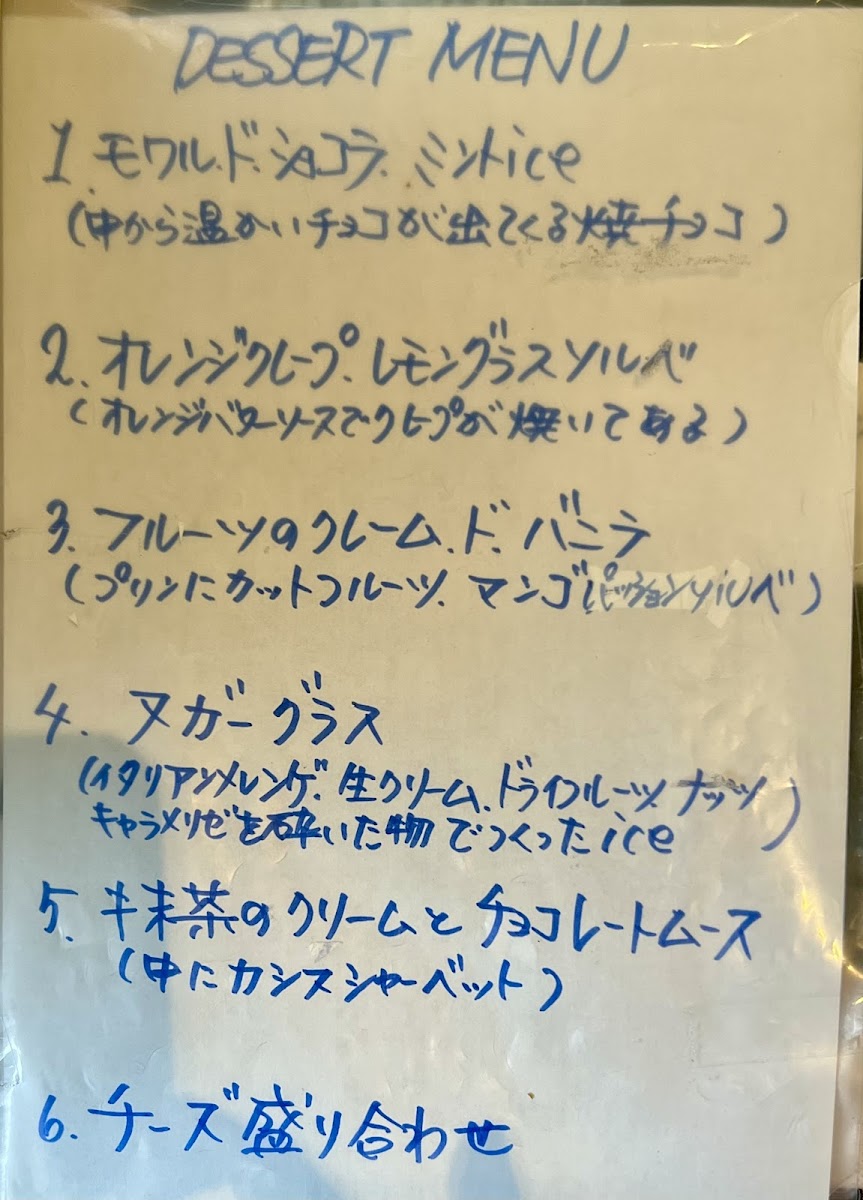 DESSERT MENU
1. モワル.ド.ショコラ. ミントice
(中から温かいチョコが出てくる焼チョコ)
2. オレンジクレープ. レモングラスソルベ
(オレンジバターソースでクレープが焼いてある)
3. フルーツのクレーム.ド.バニラ
(プリンにカットフルーツ. マンゴパッションソルベ)
4. ヌガーグラス
(イタリアンメレンゲ. 生クリーム. ドライフルーツ. ナッツ
キャラメリゼを砕いた物でつくったice)
5. 抹茶のクリームとチョコレートムース
(中にカシスシャーベット)
6. チーズ盛り合わせ